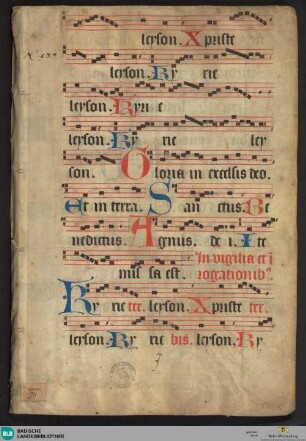 leyson. Xpriste
leyson. Ky rie
leyson. Kyrie
leyson. Ky rie ley
son. Gloria in excelsis deo.
Et in terra. San ctus. Be
nedictus. Agnus. de i. Ite
missa est. In vigilia et i
rogationib9
Ky rie ter. leyson. Xpriste ter.
leyson. Ky rie bis. leyson. Ky
BLB BADISCHE
LANDESBIBLIOTHEK